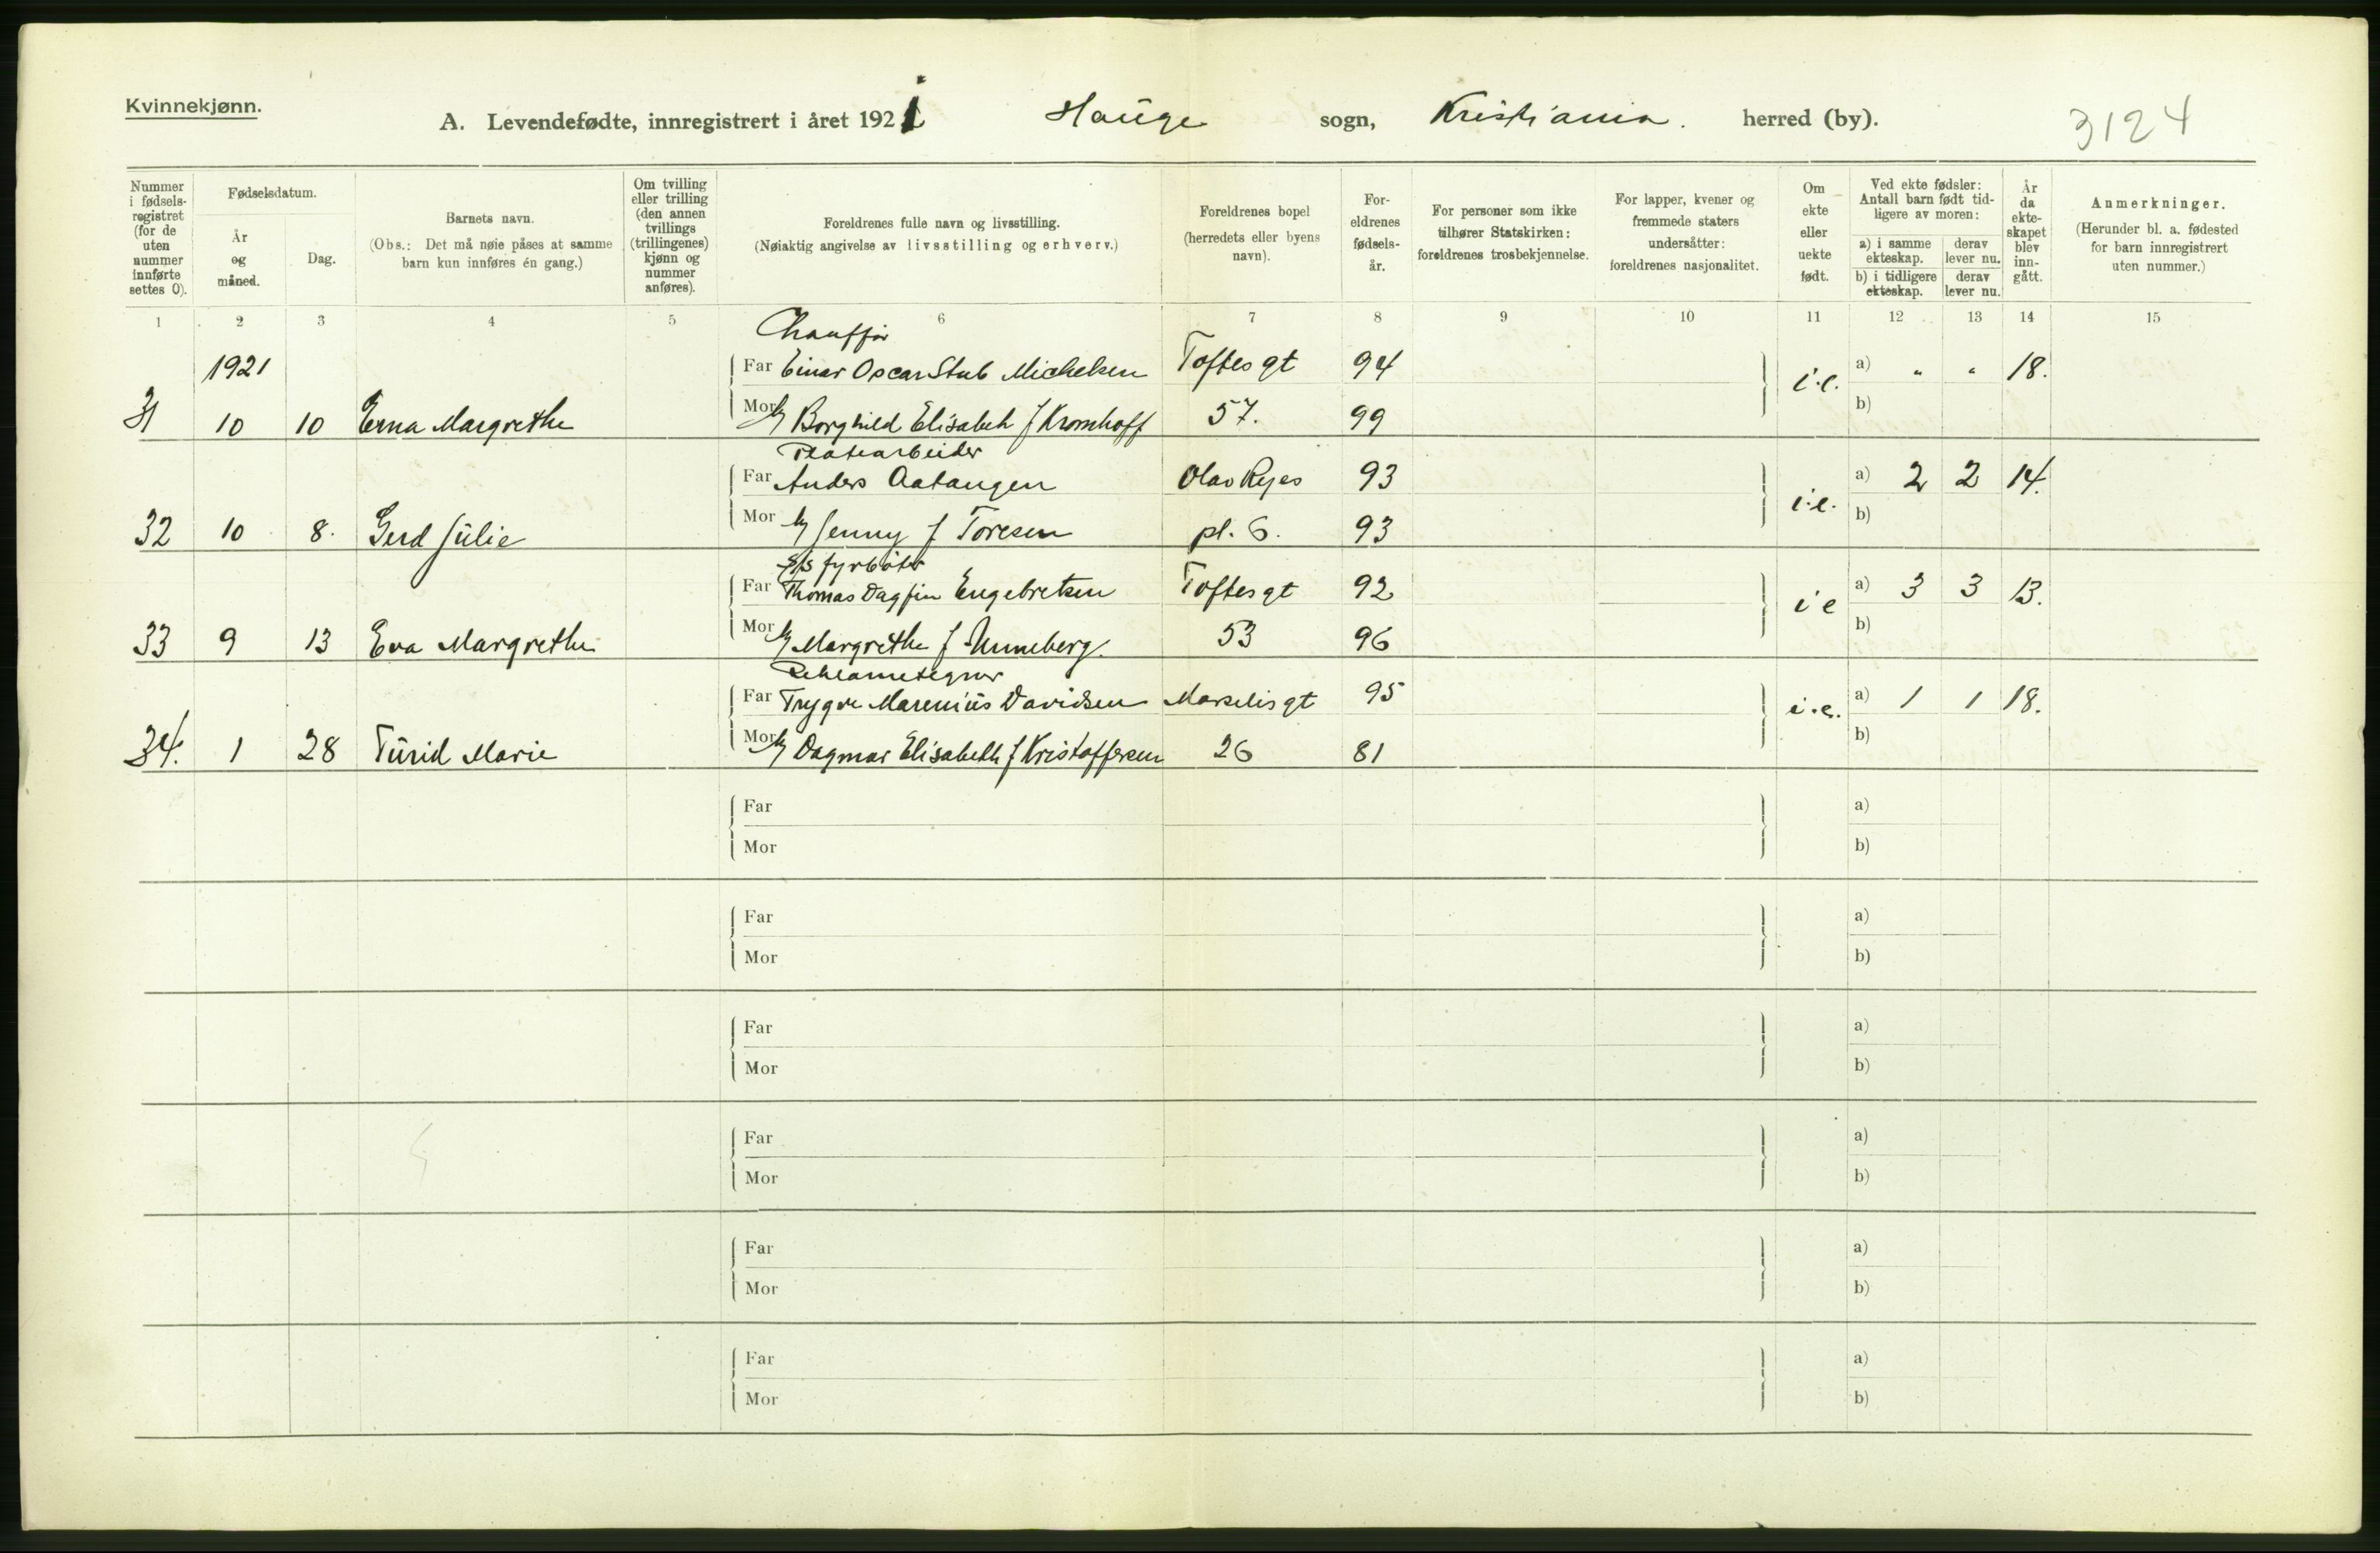 Kvinnekjønn.
A. Levendefødte, innregistrert i året 1921 Hauge sogn, Kristiania. herred (by). 3124
Nummer i fødselsregistret (for de uten nummer innførte settes 0).
Fødselsdatum.
År og måned.
Dag.
Barnets navn.
(Obs.: Det må nøie påses at samme barn kun innføres én gang.)
Om tvilling eller trilling (den annen tvillings (trillingenes) kjønn og nummer anføres).
Foreldrenes fulle navn og livsstilling.
(Nøiaktig angivelse av livsstilling og erhverv.)
Foreldrenes bopel (herredets eller byens navn).
Foreldrenes fødselsår.
For personer som ikke tilhører Statskirken: foreldrenes trosbekjennelse.
For lapper, kvener og fremmede staters undersåtter: foreldrenes nasjonalitet.
Om ekte eller uekte født.
Ved ekte fødsler: Antall barn født tidligere av moren:
a) i samme ekteskap.
derav lever nu.
b) i tidligere ekteskap.
derav lever nu.
År da ekteskapet blev inngått.
Anmerkninger.
(Herunder bl. a. fødested for barn innregistrert uten nummer.)
1 2 3 4 5 6 7 8 9 10 11 12 13 14 15
Chauffør
1921 Far Einar Oscar Stub Michelsen Toftes gt 94 i.e. a) " " 18.
31 10 10 Erna Margrethe Mor Borghild Elisabeth f Kromhoff 57. 99 b)
Far Anders Aatangen Olav Ryes 93 i.e. a) 2 2 14.
32 10 8. Gerd Julie Mor Jenny f Toresen pl. 6. 93 b)
S/S fyrbøter
Far Thomas Dagfin Engebretsen Toftes gt 92 i e a) 3 3 13.
33 9 13 Eva Margrethe Mor Margrethe f Unneberg. 53 96 b)
Reklametegner
Far Trygve Marenius Davidsen Marselis gt 95 i.e. a) 1 1 18.
34. 1 28 Turid Marie Mor Dagmar Elisabeth f Kristoffersen 26 81 b)
Far a)
Mor b)
Far a)
Mor b)
Far a)
Mor b)
Far a)
Mor b)
Far a)
Mor b)
Far a)
Mor b)